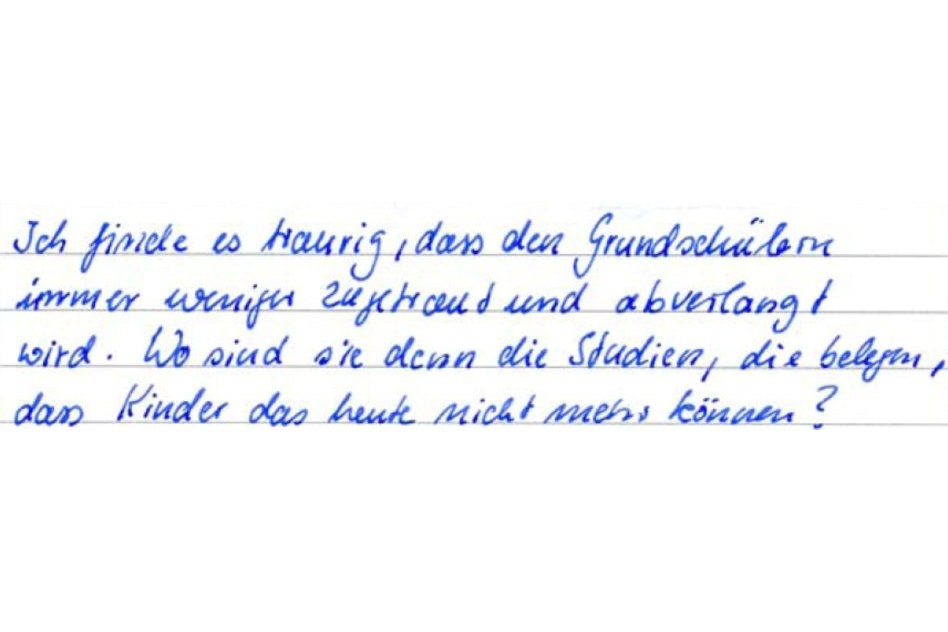 Ich finde es traurig, dass den Grundschülern
immer weniger zugetraut und abverlangt
wird. Wo sind sie denn die Studien, die belegen,
dass Kinder das heute nicht mehr können?